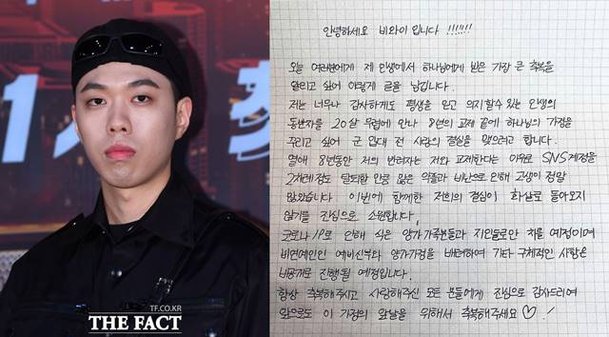 TF.CO.KR
THE FACT
안녕하세요 비와이입니다 !!!!!!!
오늘 여러분에게 제 인생에서 하나님에게 받은 가장 큰 축복을
알리고 싶어 이렇게 글을 남깁니다.
저는 너무나 감사하게도 평생을 믿고 의지할 수 있는 인생의
동반자를 20살 무렵에 만나 8년의 교제 끝에 하나님의 가정을
꾸리고 싶어 군 입대 전 사랑의 결실을 맺으려고 합니다.
연애 8년동안 저의 반려자는 저와 교제한다는 이유로 SNS계정을
2차례정도 탈퇴할 만큼 많은 악플과 비난으로 인해 고생이 정말
많았습니다. 이번에 함께한 저희의 결심이 화살로 돌아오지
않기를 진심으로 소원합니다.
코로나19로 인해 식은 양가가족분들과 지인들로만 치를 예정이며
비연예인인 예비신부와 양가가정을 배려하여 기타 구체적인 사항은
비공개로 진행될 예정입니다.
항상 축복해주시고 사랑해주신 모든 분들에게 진심으로 감사드리며
앞으로도 이 가정의 앞날을 위해서 축복해주세요 ♡.!